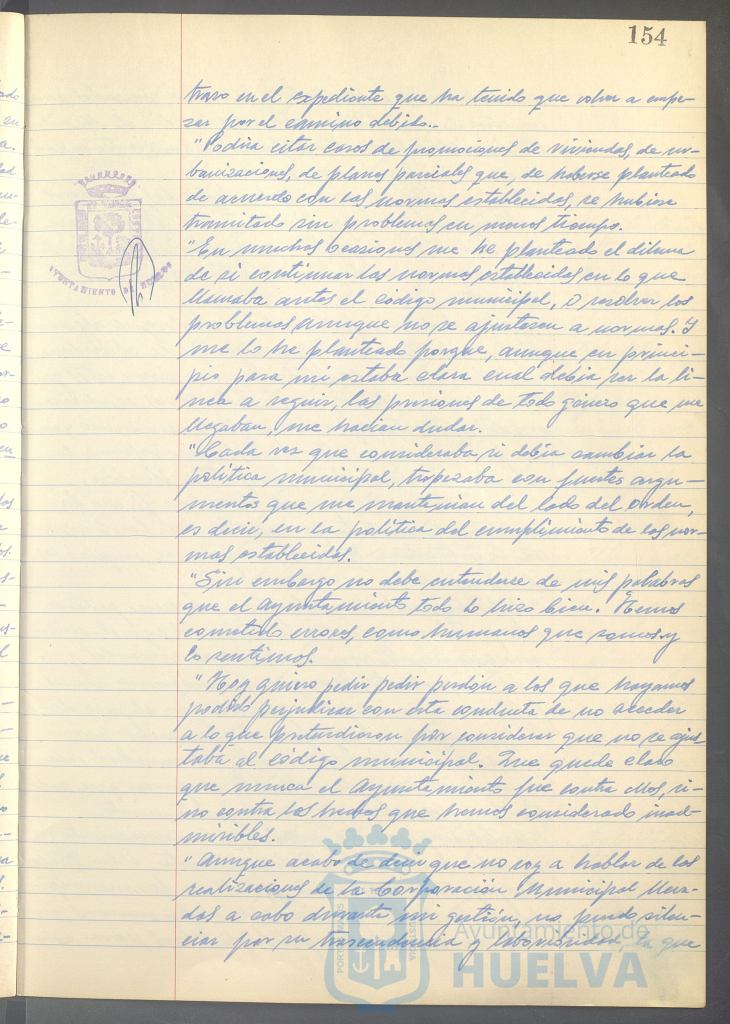 154
traso en el expediente que ha tenido que volver a empe-
zar por el camino debido.-
"Podria citar casos de promociones de viviendas, de ur-
banizaciones, de planes parciales que, de haberse planteado
de acuerdo con las normas establecidas, se hubiese
tramitado sin problemas en menos tiempo.
"En muchas ocasiones me he planteado el dilema
de si continuar las normas establecidas en lo que
llamaba antes el código municipal, o resolver los
problemas aunque no se ajustasen a normas. Y
me lo he planteado porque, aunque en princi-
pio para mi estaba clara cual debia ser la li-
nea a seguir, las presiones de todo género que me
llegaban, me hacian dudar.
"Cada vez que consideraba si debia cambiar la
politica municipal, tropezaba con fuertes argu-
mentos que me mantenian del lado del orden,
es decir, en la politica del cumplimiento de las nor-
mas establecidas.
"Sin embargo no debe entenderse de mis palabras
que el Ayuntamiento todo lo hizo bien. Hemos
cometido errores, como humanos que somos y
lo sentimos.
"Hoy quiero pedir pedir perdón a los que hayamos
podido perjudicar con esta conducta de no acceder
a lo que pretendieron por considerar que no se ajus-
taba al código municipal. Que quede claro
que nunca el Ayuntamiento fue contra ellos, si-
no contra los hechos que hemos considerado inad-
misibles.
"Aunque acabo de decir que no voy a hablar de las
realizaciones de la Corporación Municipal lleva-
das a cabo durante mi gestión, no puedo silen-
ciar por su trascendencia y laboriosidad, la que
AYUNTAMIENTO DE HUELVA
Ayuntamiento de
HUELVA